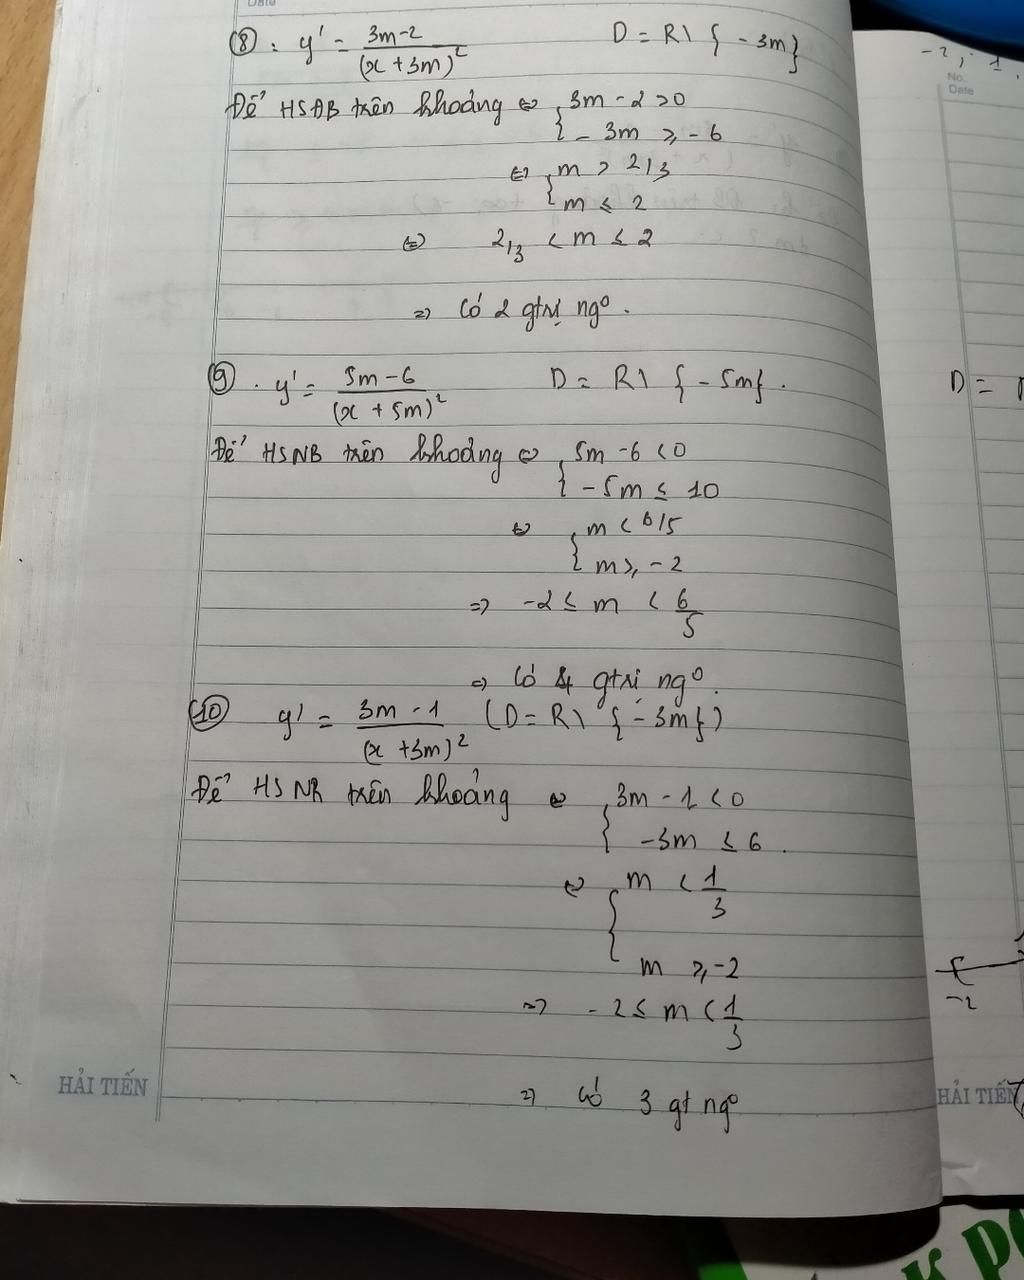 Date
⑧. y' = (3m-2)/(x+3m)² D = R\{-3m}
Để HSĐB trên khoảng ⇔ {3m - 2 > 0
- 3m ≥ - 6
⇔ {m > 2/3
m ≤ 2
⇔ 2/3 < m ≤ 2
=> Có 2 gtrị ng⁰.
⑨. y' = (5m-6)/(x+5m)² D = R\{-5m}.
Để HSNB trên khoảng ⇔ {5m - 6 < 0
- 5m ≤ 10
⇔ {m < 6/5
m ≥ - 2
=> -2 ≤ m < 6/5
=> Có 4 gtrị ng⁰.
⑩ y' = (3m-1)/(x+3m)² (D = R\{-3m})
Để HSNB trên khoảng ⇔ {3m - 1 < 0
-3m ≤ 6.
⇔ {m < 1/3
m ≥ -2
=> - 2 ≤ m < 1/3
=> Có 3 gt ng⁰
HẢI TIẾN
No.
Date
D =
-2
HẢI TIẾN